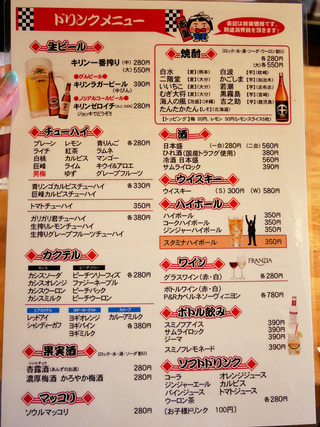 ドリンクメニュー
表記は税抜価格です。
別途消費税を頂きます!
生ビール
キリン一番搾り (中) 280円
(大) 550円
●びんビール●
キリンラガービール 390円
(中びん)
●ノンアルコールビール●
キリンゼロイチ(小びん) 280円
ジョッキでどうぞ!!
チューハイ
プレーン レモン 青りんご 各280円
ライチ 紅茶 ラムネ
白桃 カルピス マンゴー
巨峰 ライム キウイ&アロエ
男梅 ゆず グレープフルーツ
青リンゴカルピスチューハイ 各330円
巨峰カルピスチューハイ
トマトチューハイ 350円
ガリガリ君チューハイ 各380円
生搾りレモンチューハイ
生搾りグレープフルーツチューハイ
カクテル
カシス ピーチツリー
カシスソーダ ピーチツリーフィズ 各280円
カシスオレンジ ファジーネーブル
カシスウーロン レゲエパンチ
カシスミルク ピーチウーロン
ビアカクテル ヨギーヨーグルト カルーア
レッドアイ ヨギオレンジ カルーアミルク
シャンディーガフ ヨギパイン 各280円
ヨギミルク 各380円
果実酒 (ロック・水・湯・ソーダ割り)
杏露酒(あんずのお酒) 280円
濃厚梅酒 かろやか梅酒 280円
マッコリ
ソウルマッコリ 280円
焼酎 (ロック・水・湯・ソーダ・ウーロン割り)
各(小) 280円
各(大) 550円
白水 【麦】(熊本) 白波 【芋】(枕崎)
二階堂 【麦】(大分) かごしま 【芋】(鹿児島)
いいちこ 【麦】(大分) 若潮 【芋】(志布志)
むぎ大臣 【麦】(福岡) 黒霧島 【芋】(宮崎)
海人の風 【泡盛】(沖縄) 吉之助 【芋】(鹿児島)
たんたかたん【しそ】(北海道)
【トッピング】梅 50円、レモン 50円(レモンスライス5枚)
酒
日本盛 (一合)280円 (二合)560円
ひれ酒(国産トラフグ使用) 380円
冷酒 日本盛 560円
サムライロック 390円
ウイスキー
ウイスキー (S) 300円 (W) 580円
ハイボール
ハイボール 350円
コークハイボール 350円
ジンジャーハイボール 350円
スタミナハイボール 350円
ワイン
FRANZIA
グラスワイン(赤・白) 各280円
ボトルワイン(赤・白)
P&Rカベルネソーヴィニヨン 各780円
ボトル飲み
スミノフアイス 390円
サムライロック 390円
ジーマ 390円
スミノフレモネード 390円
ソフトドリンク
コーラ オレンジジュース
ジンジャーエール カルピス
パインジュース トマトジュース
ウーロン茶 各280円
(お子様ドリンク 100円)